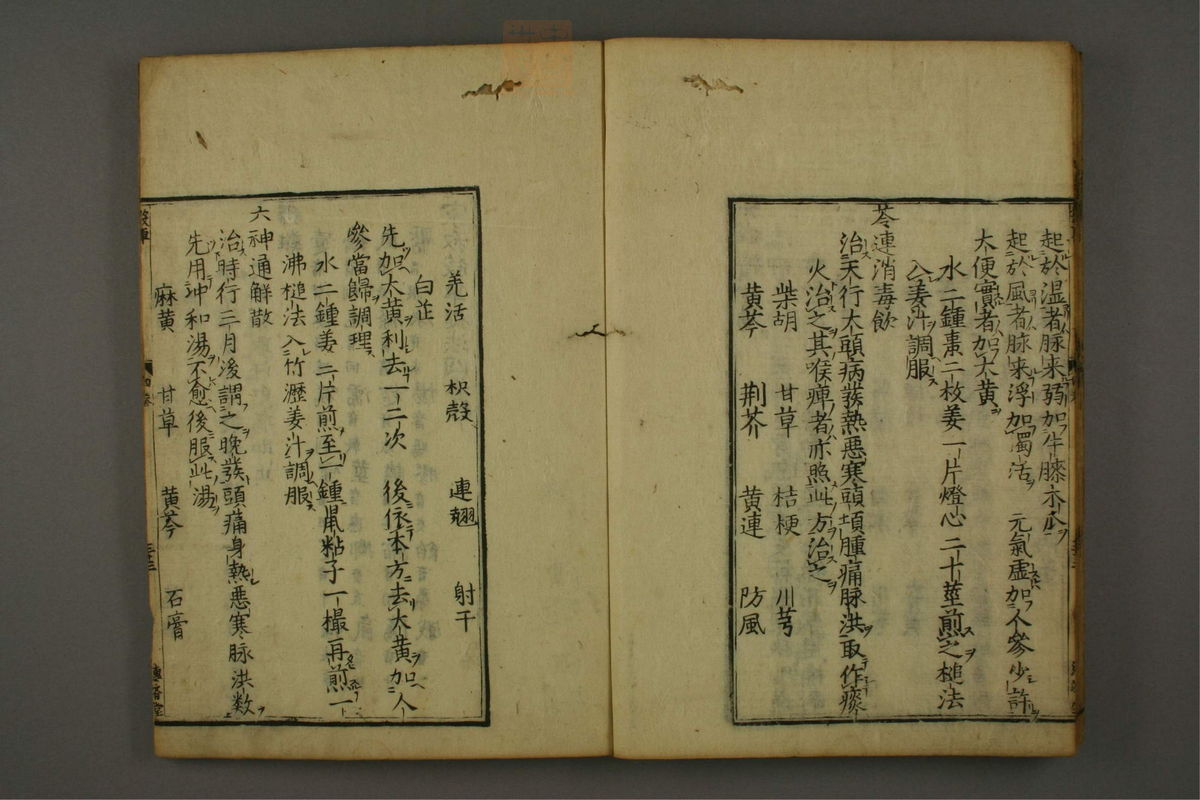 起於湿者脉来弱加牛膝木瓜
起於風者脉来浮加獨活　元氣虚加人參少許
大便實者加大黄
水二鍾棗二枚姜一片燈心二十莖煎之槌法
入姜汁調服
芩連消毒飲
治天行大頭病發熱惡寒頭項腫痛脉洪取作痰
火治之其喉痺者亦照此方治之
柴胡　甘草　桔梗　川芎
黄芩　荆芥　黄連　防風
羌活　枳殻　連翹　射干
白芷
先加大黄利去一二次　後依本方去大黄加人
參當歸調理
水二鍾姜三片煎至一鍾鼠粘子一撮再煎一
沸槌法入竹瀝姜汁調服
六神通解散
治時行三月後謂之晩發頭痛身熱惡寒脉洪数
先用冲和湯不愈後服此湯
麻黄　甘草　黄芩　石膏